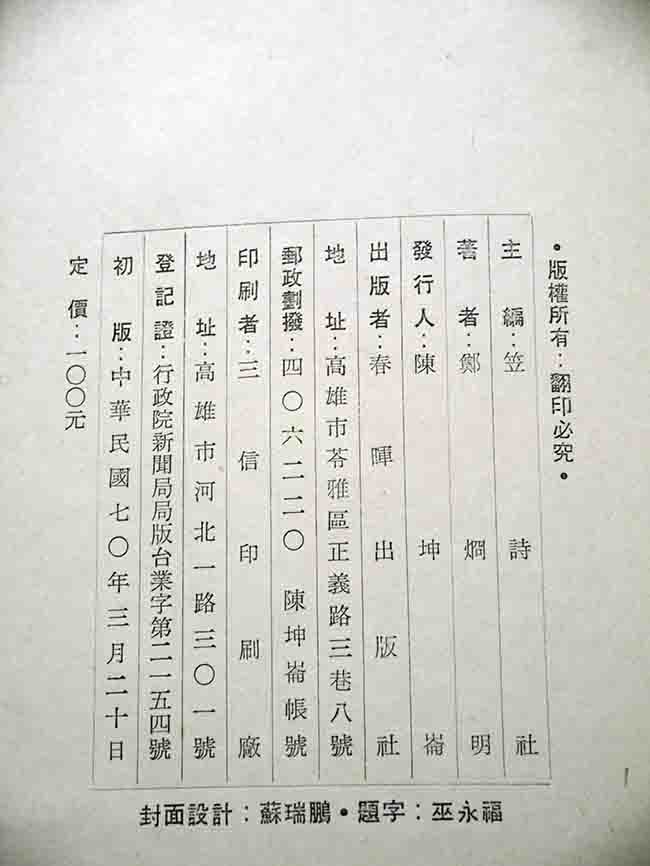 •版權所有：翻印必究•
主編：笠詩社
著者：鄭烱明
發行人：陳坤崙
出版者：春暉出版社
地址：高雄市苓雅區正義路三巷八號
郵政劃撥：四〇六二二〇 陳坤崙帳號
印刷者：三信印刷廠
地址：高雄市河北一路三〇一號
登記證：行政院新聞局局版台業字第二一五四號
初版：中華民國七〇年三月二十日
定價：一〇〇元
封面設計：蘇瑞鵬•題字：巫永福